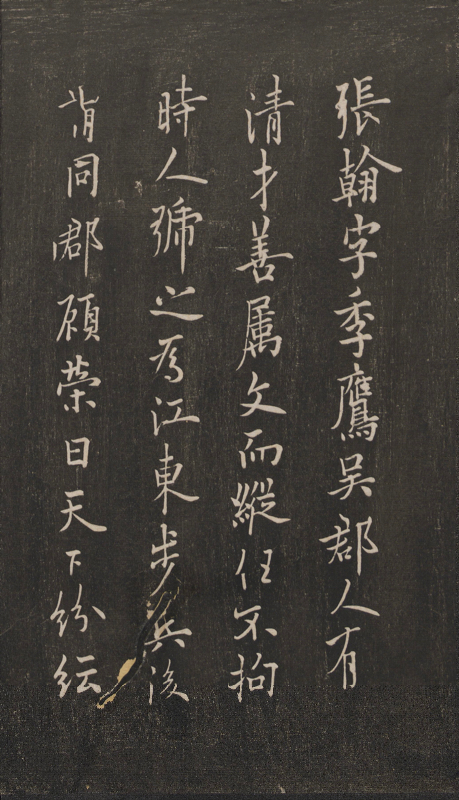 張翰字季鷹吴郡人有
清才善属文而縱任不拘
時人號之為江東步兵後
同郡顧榮曰天下紛紜